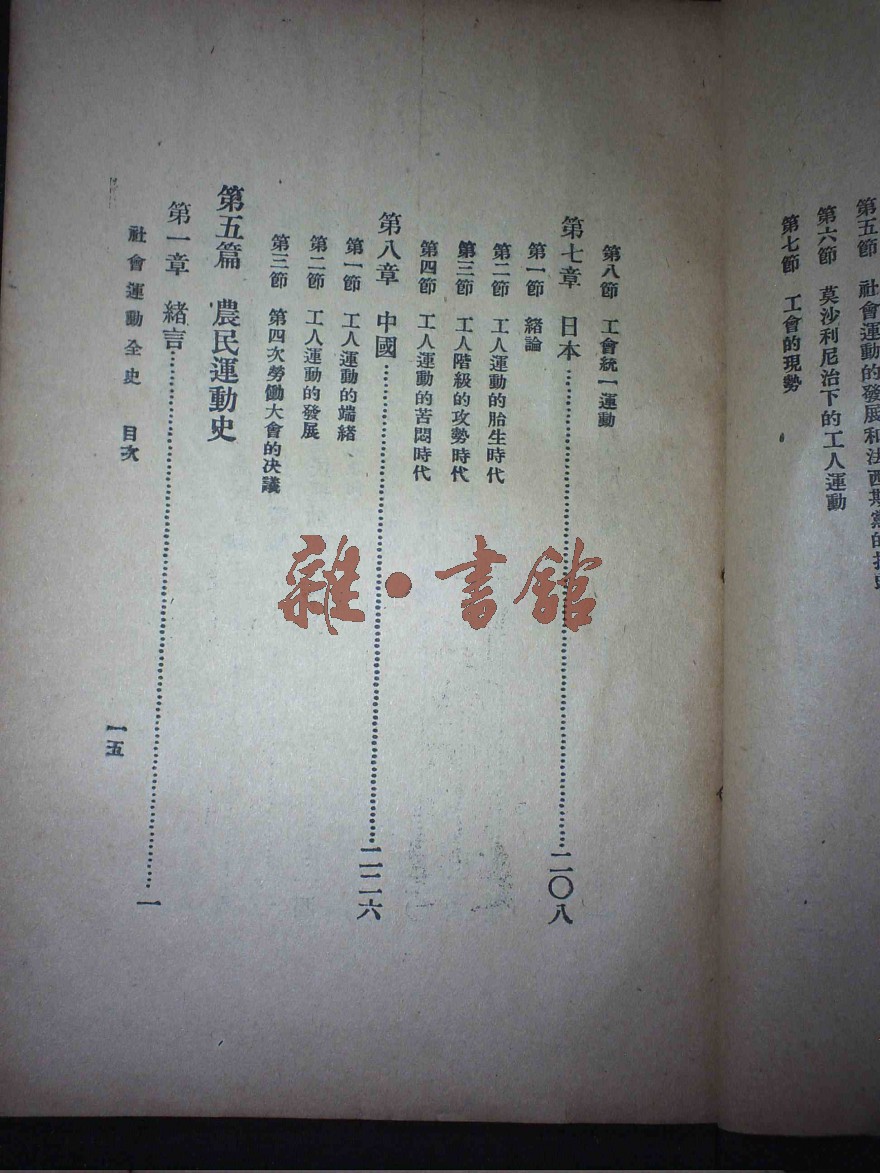 第五節　社會運動的發展和法西斯黨的
第六節　莫沙利尼治下的工人運動
第七節　工會的現勢
第八節　工會統一運動
第七章　日本……二〇八
第一節　緒論
第二節　工人運動的胎生時代
第三節　工人階級的攻勢時代
第四節　工人運動的苦悶時代
第八章　中國……二二六
第一節　工人運動的端緒
第二節　工人運動的發展
第三節　第四次勞働大會的決議
第五篇　農民運動史
第一章　緒言……一
社會運動全史　目次
一五
雜·書館